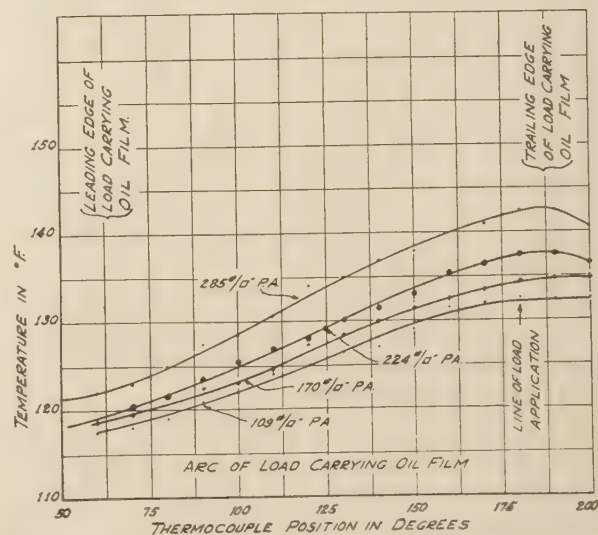 LEADING EDGE OF
LOAD CARRYING
OIL FILM.
TRAILING EDGE
OF LOAD CARRYING
OIL FILM
TEMPERATURE IN °F.
150
140
130
120
110
285#/□" P.A.
224#/□" P.A.
170#/□" P.A.
109#/□" P.A.
LINE OF LOAD
APPLICATION
ARC OF LOAD CARRYING OIL FILM
50 75 100 125 150 175 200
THERMOCOUPLE POSITION IN DEGREES